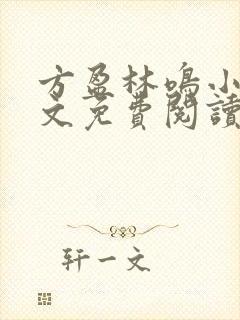 方盈林鳴小
文免費閱讀
轩一文